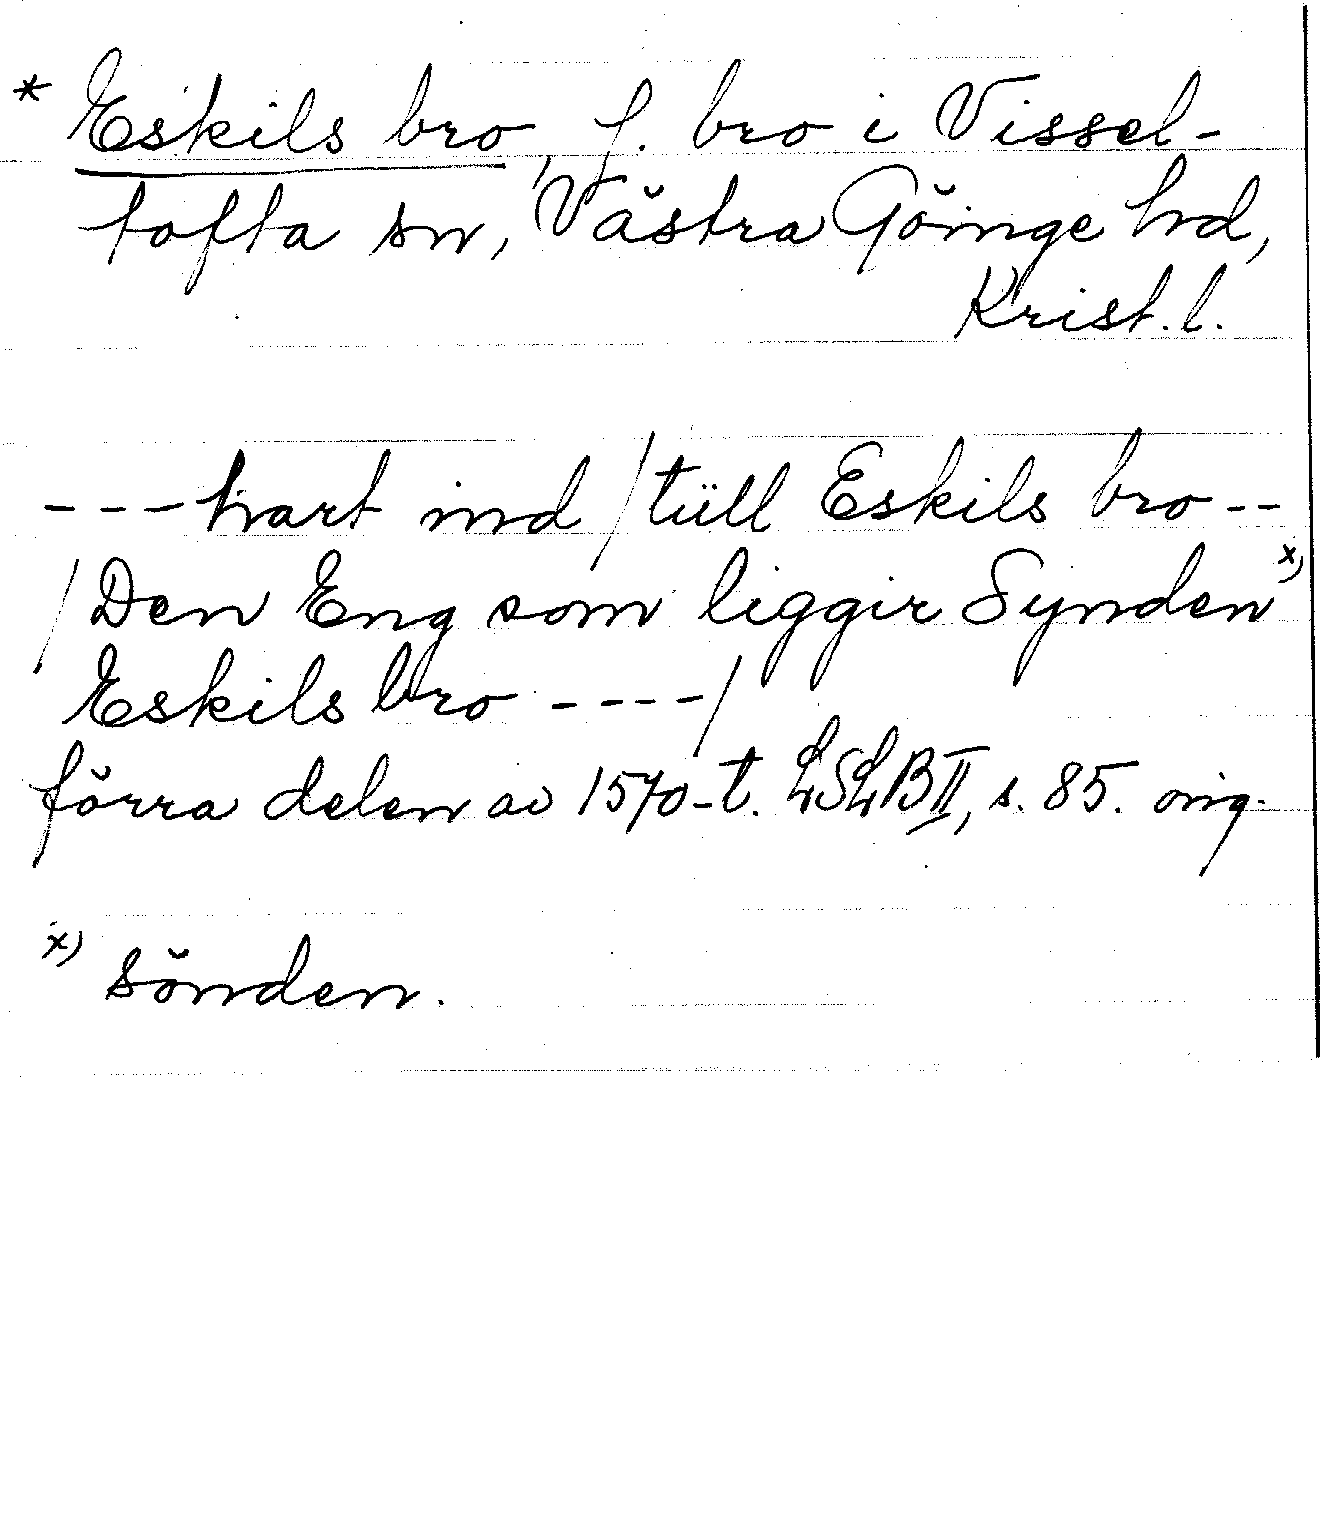 * Eskils bro, f. bro i Vissel-
tofta sn, Västra Göinge hd,
Krist. l.
---hart ind /tüll Eskils bro--
/Den Eng som liggir Synden x)
Eskils bro ----/
förra delen av 1570-t. LSLB II, s. 85. orig.
x) sönden.